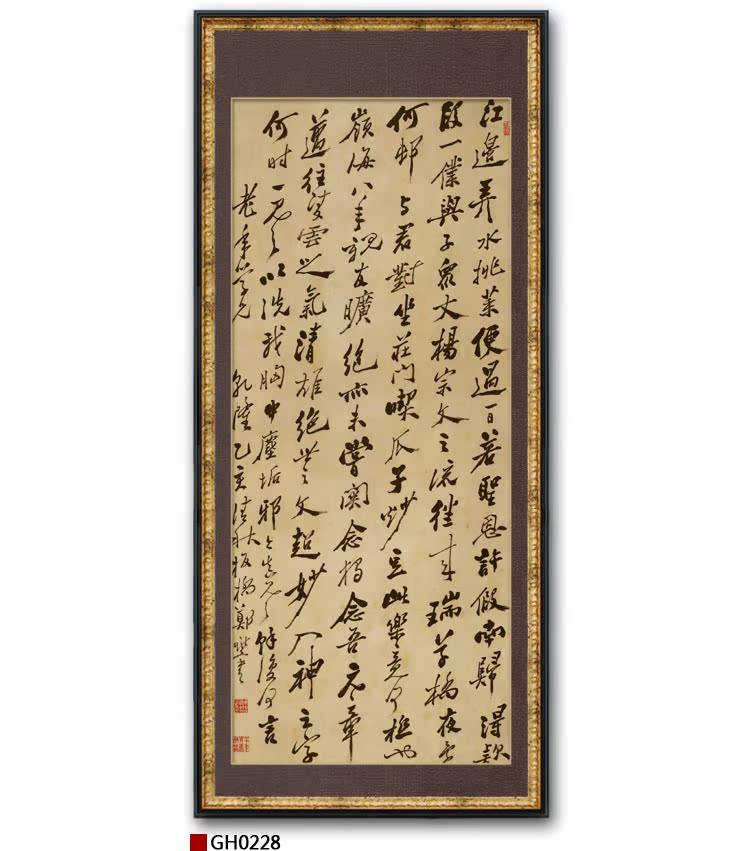 江邊弄水挑菜便過一日若聖恩許假南歸得款
段一僕與子眾丈楊宗文之流往來瑞草橋夜還
何邨与君對坐莊門喫瓜子炒豆此樂竟何極也
嶺海八年親友曠絕亦未嘗關念獨念吾元章
邁往凌雲之氣清雄絕世之文超妙入神之字
何时一見之以洗我胸中塵垢邪今真見之餘復何言
老年學兄 乾隆乙亥清秋板橋鄭燮書
GH0228